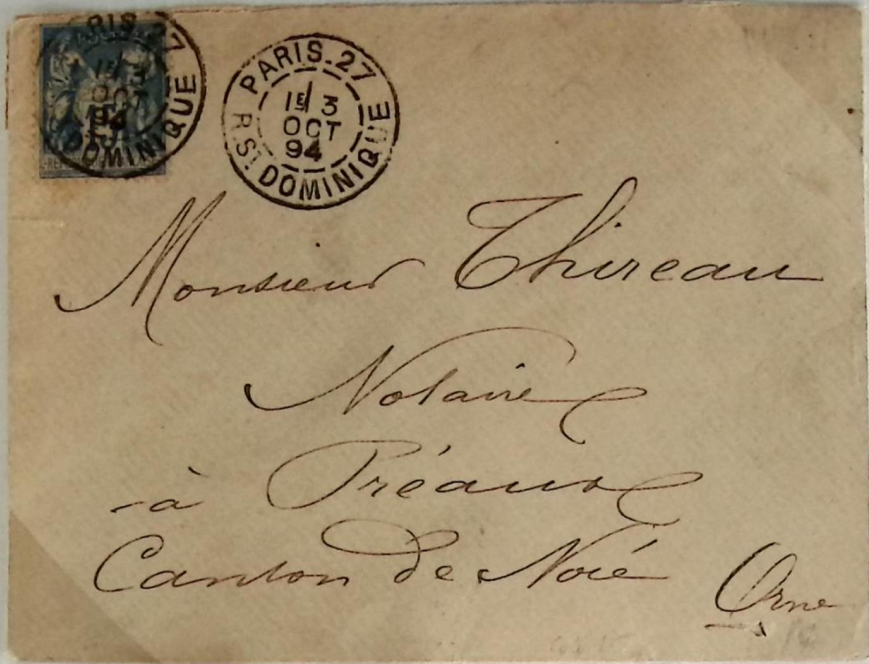 PARIS_27
1E/ 3
OCT
94
R. ST DOMINIQUE
PARIS_27
1E/ 3
OCT
94
DOMINIQUE
Monsieur Thireau
Notaire
-à Préaux
Canton de Noié
Orne